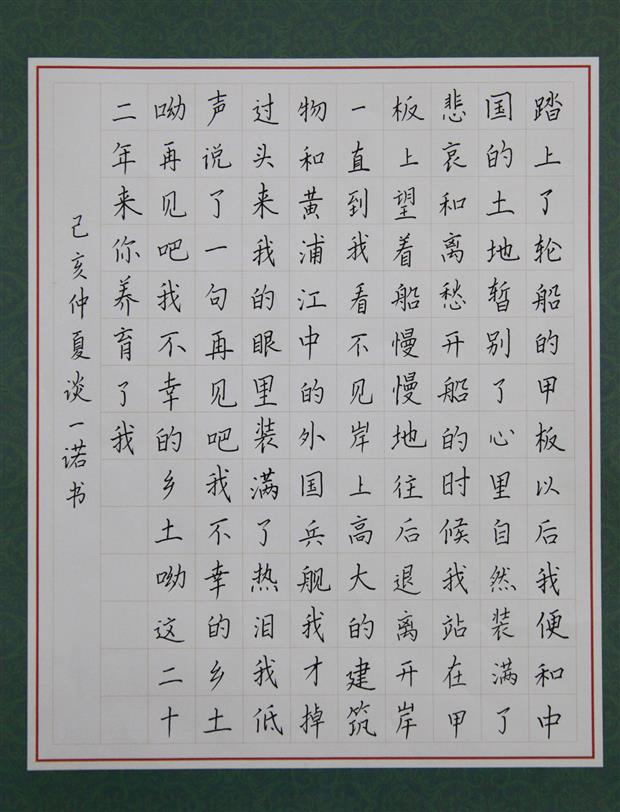 踏上了轮船的甲板以后我便和中
国的土地暂别了心里自然装满了
悲哀和离愁开船的时候我站在甲
板上望着船慢慢地往后退离开岸
一直到我看不见岸上高大的建筑
物和黄浦江中的外国兵舰我才掉
过头来我的眼里装满了热泪我低
声说了一句再见吧我不幸的乡土
呦再见吧我不幸的乡土呦这二十
二年来你养育了我
己亥仲夏谈一诺书